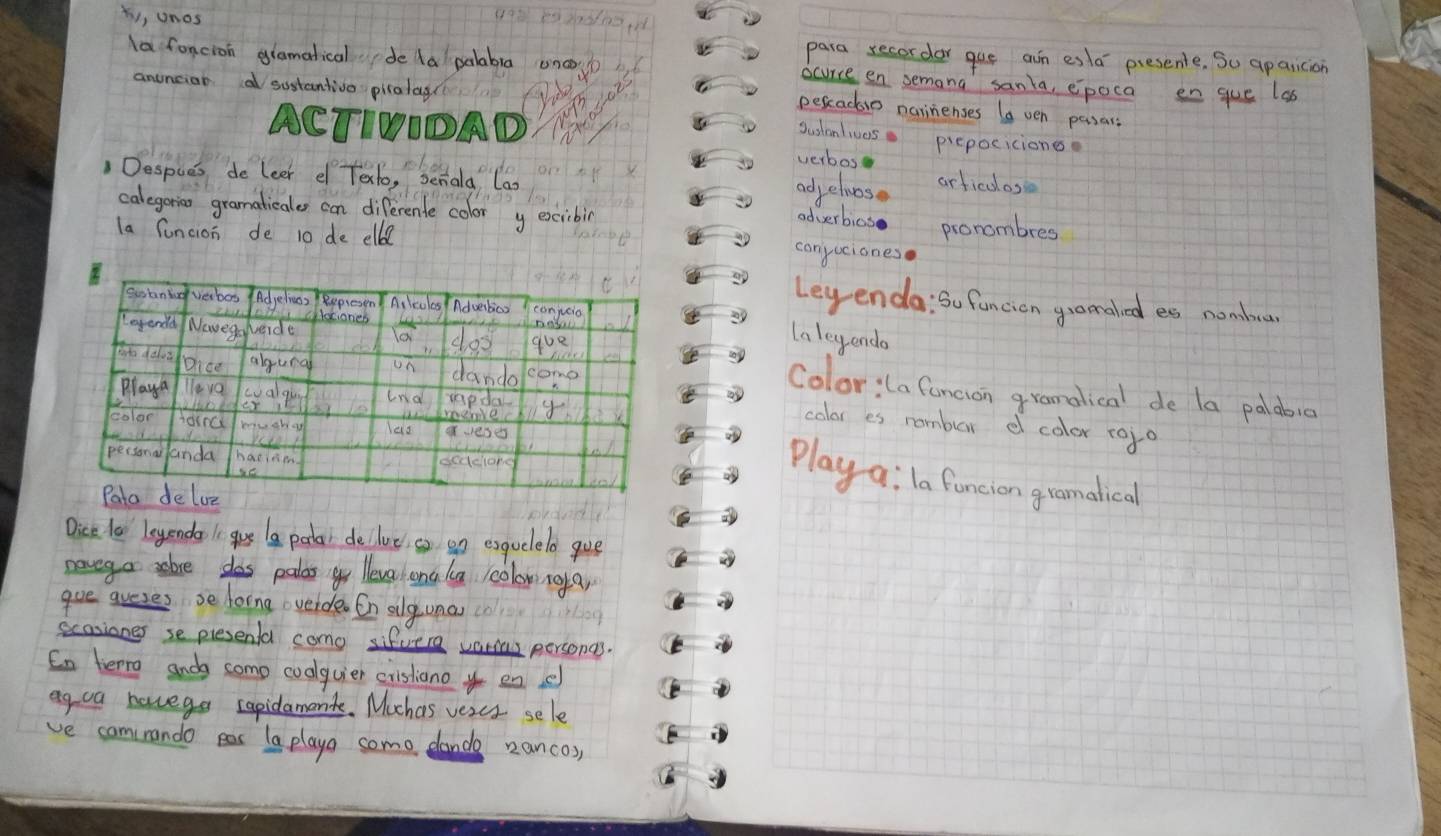 unos
la foncion gramatical de la palabra unos
anunciar al sustantivo piratas
ACTIVIDAD
Despues de leer el Texto, señala las
categorias gramaticales con diferente color y escribir
la funcion de 10 de ella
verbos Adjetivos Articulos Adverbios
Navega verde la dos que
Dice algunas un dando como
Playa lleva cualqui
er una rapida
mente y
color torna muchas las aveses
persona anda
Pata de luz
Dice la leyenda que la pata de luz es un esquelelo que
navega sobre dos palos y lleva una luz color roja,
que aveses se torna verde. En algunas
ocasiones se presenta como sifuera varias personas.
En tierra anda como cualquier cristiano y en el
agua navega rapidamente. Muchas veses se le
ve caminando por la playa como dando zancos,
para recordar que aún está presente. Su aparicion
ocurre en semana santa, época en que los
pescadores nariñenses la ven pasar.
Sustantivos prepociciones
verbos
adjetivos articulos
adverbios pronombres
conjuciones
Leyenda: Su funcion gramatical es nombrar
la leyenda
Color: la funcion gramatical de la palabra
color es nombrar el color rojo
Playa: la funcion gramatical